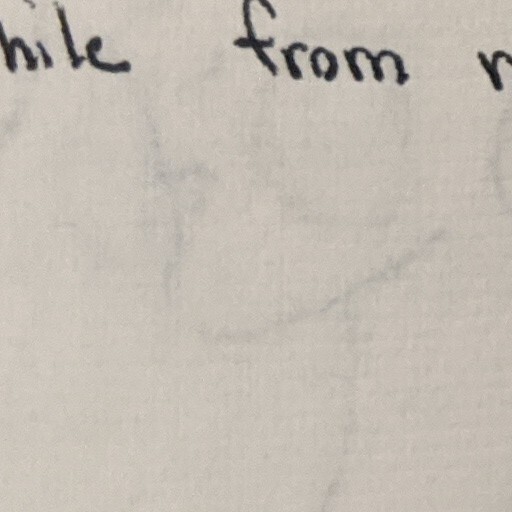 hile from